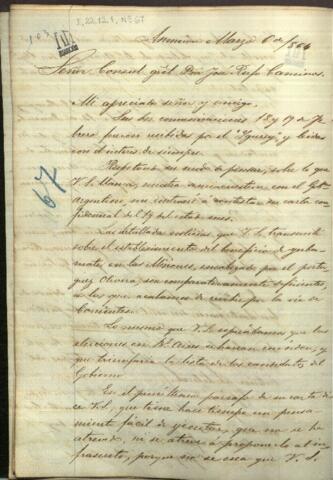 I, 22, 12, 1, Nº 67
103
Asuncion Marzo 6 de 1864
Señor Consul gral Don José Rufo Caminos
Mi apreciado señor y amigo.
Sus dos comunicaciones 18 y 19 de Fe-
brero fueron recibidas por el "Ygurey" y leidas
con el interes de siempre.
67
Respetando su modo de pensar, sobre lo que
V. S. llama, nuestra con el Gob.
argentino, me á contestar su carta con-
fidencial del 19 del citado mes.
Las detalladas noticias que V. S. transmite
sobre el establecimiento del beneficio de yerba
mate, en las Misiones, encabezado por el portu-
gues Oliveira, son comparativamente deficientes,
a las que acabamos de recibir por la via de
Corrientes.
Lo mismo que V. S. esperabamos que las
elecciones en Bs. Aires se harian con orden, y
que triunfaria la lista de los candidatos del
Gobierno
Es el penúltimo pasage de su carta di-
ce V. S., que tiene hace tiempo un pensa-
miento fácil de ejecutar, que no se ha
atrevido, ni se atreve á proponerlo al in-
frascrito, porque no se crea que V. S.